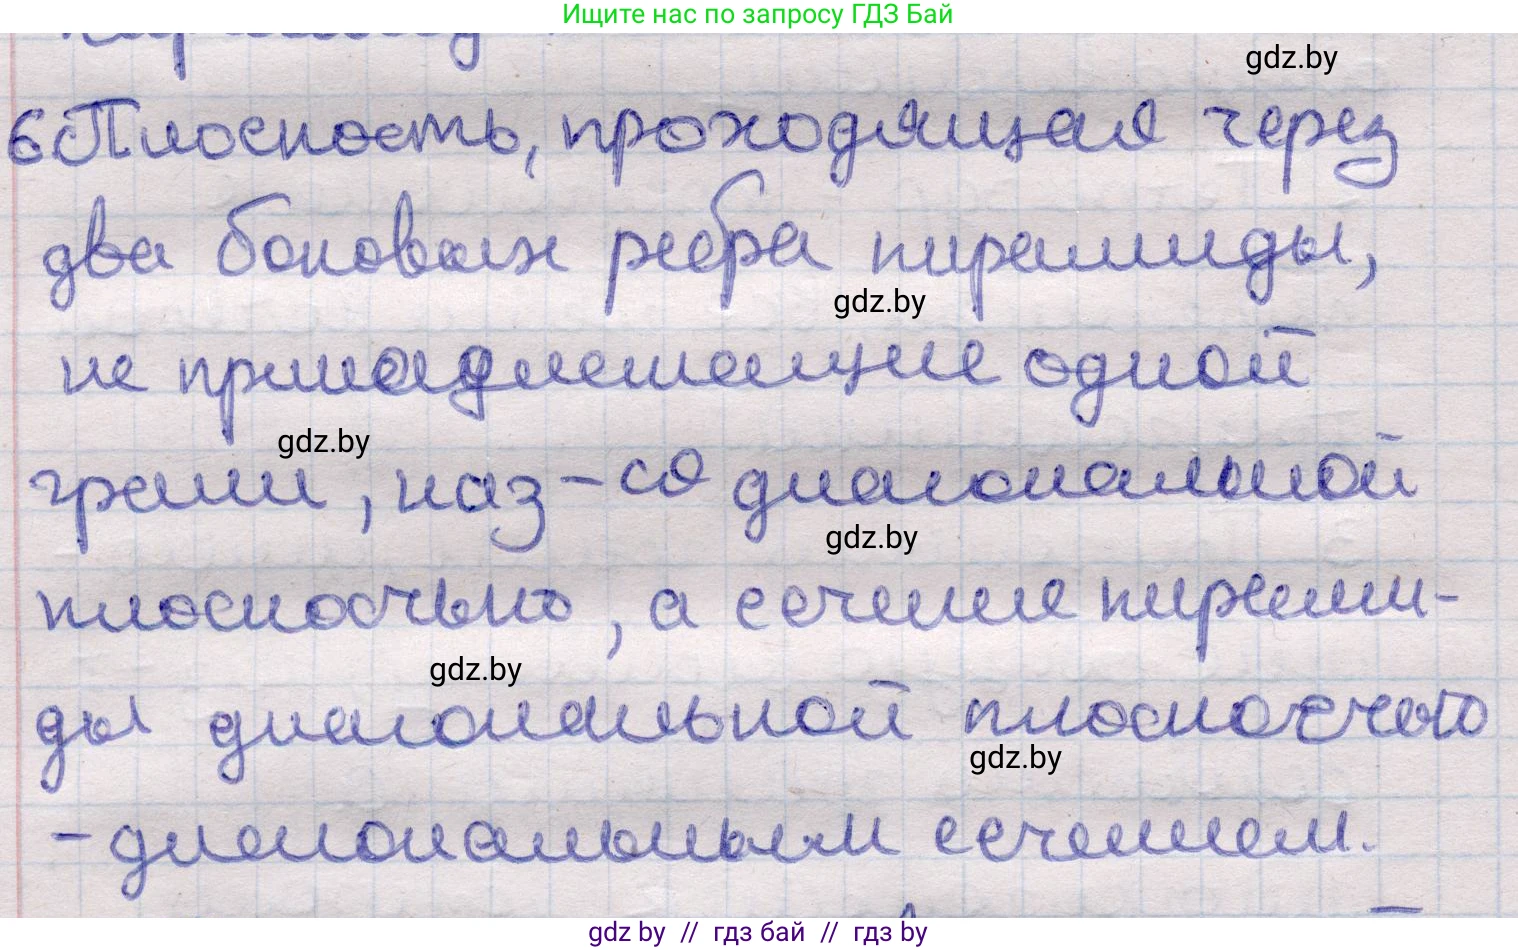 Ищите нас по запросу ГДЗ Бай
gdz.by
6 Плоскость, проходящая через
два боковых ребра пирамиды,
gdz.by
не принадлежащие одной
gdz.by
грани, наз-ся диагональной
gdz.by
плоскостью, а сечение пирами-
gdz.by
ды диагональной плоскостью
gdz.by
- диагональным сечением.
gdz by // гдз бай // гдз by